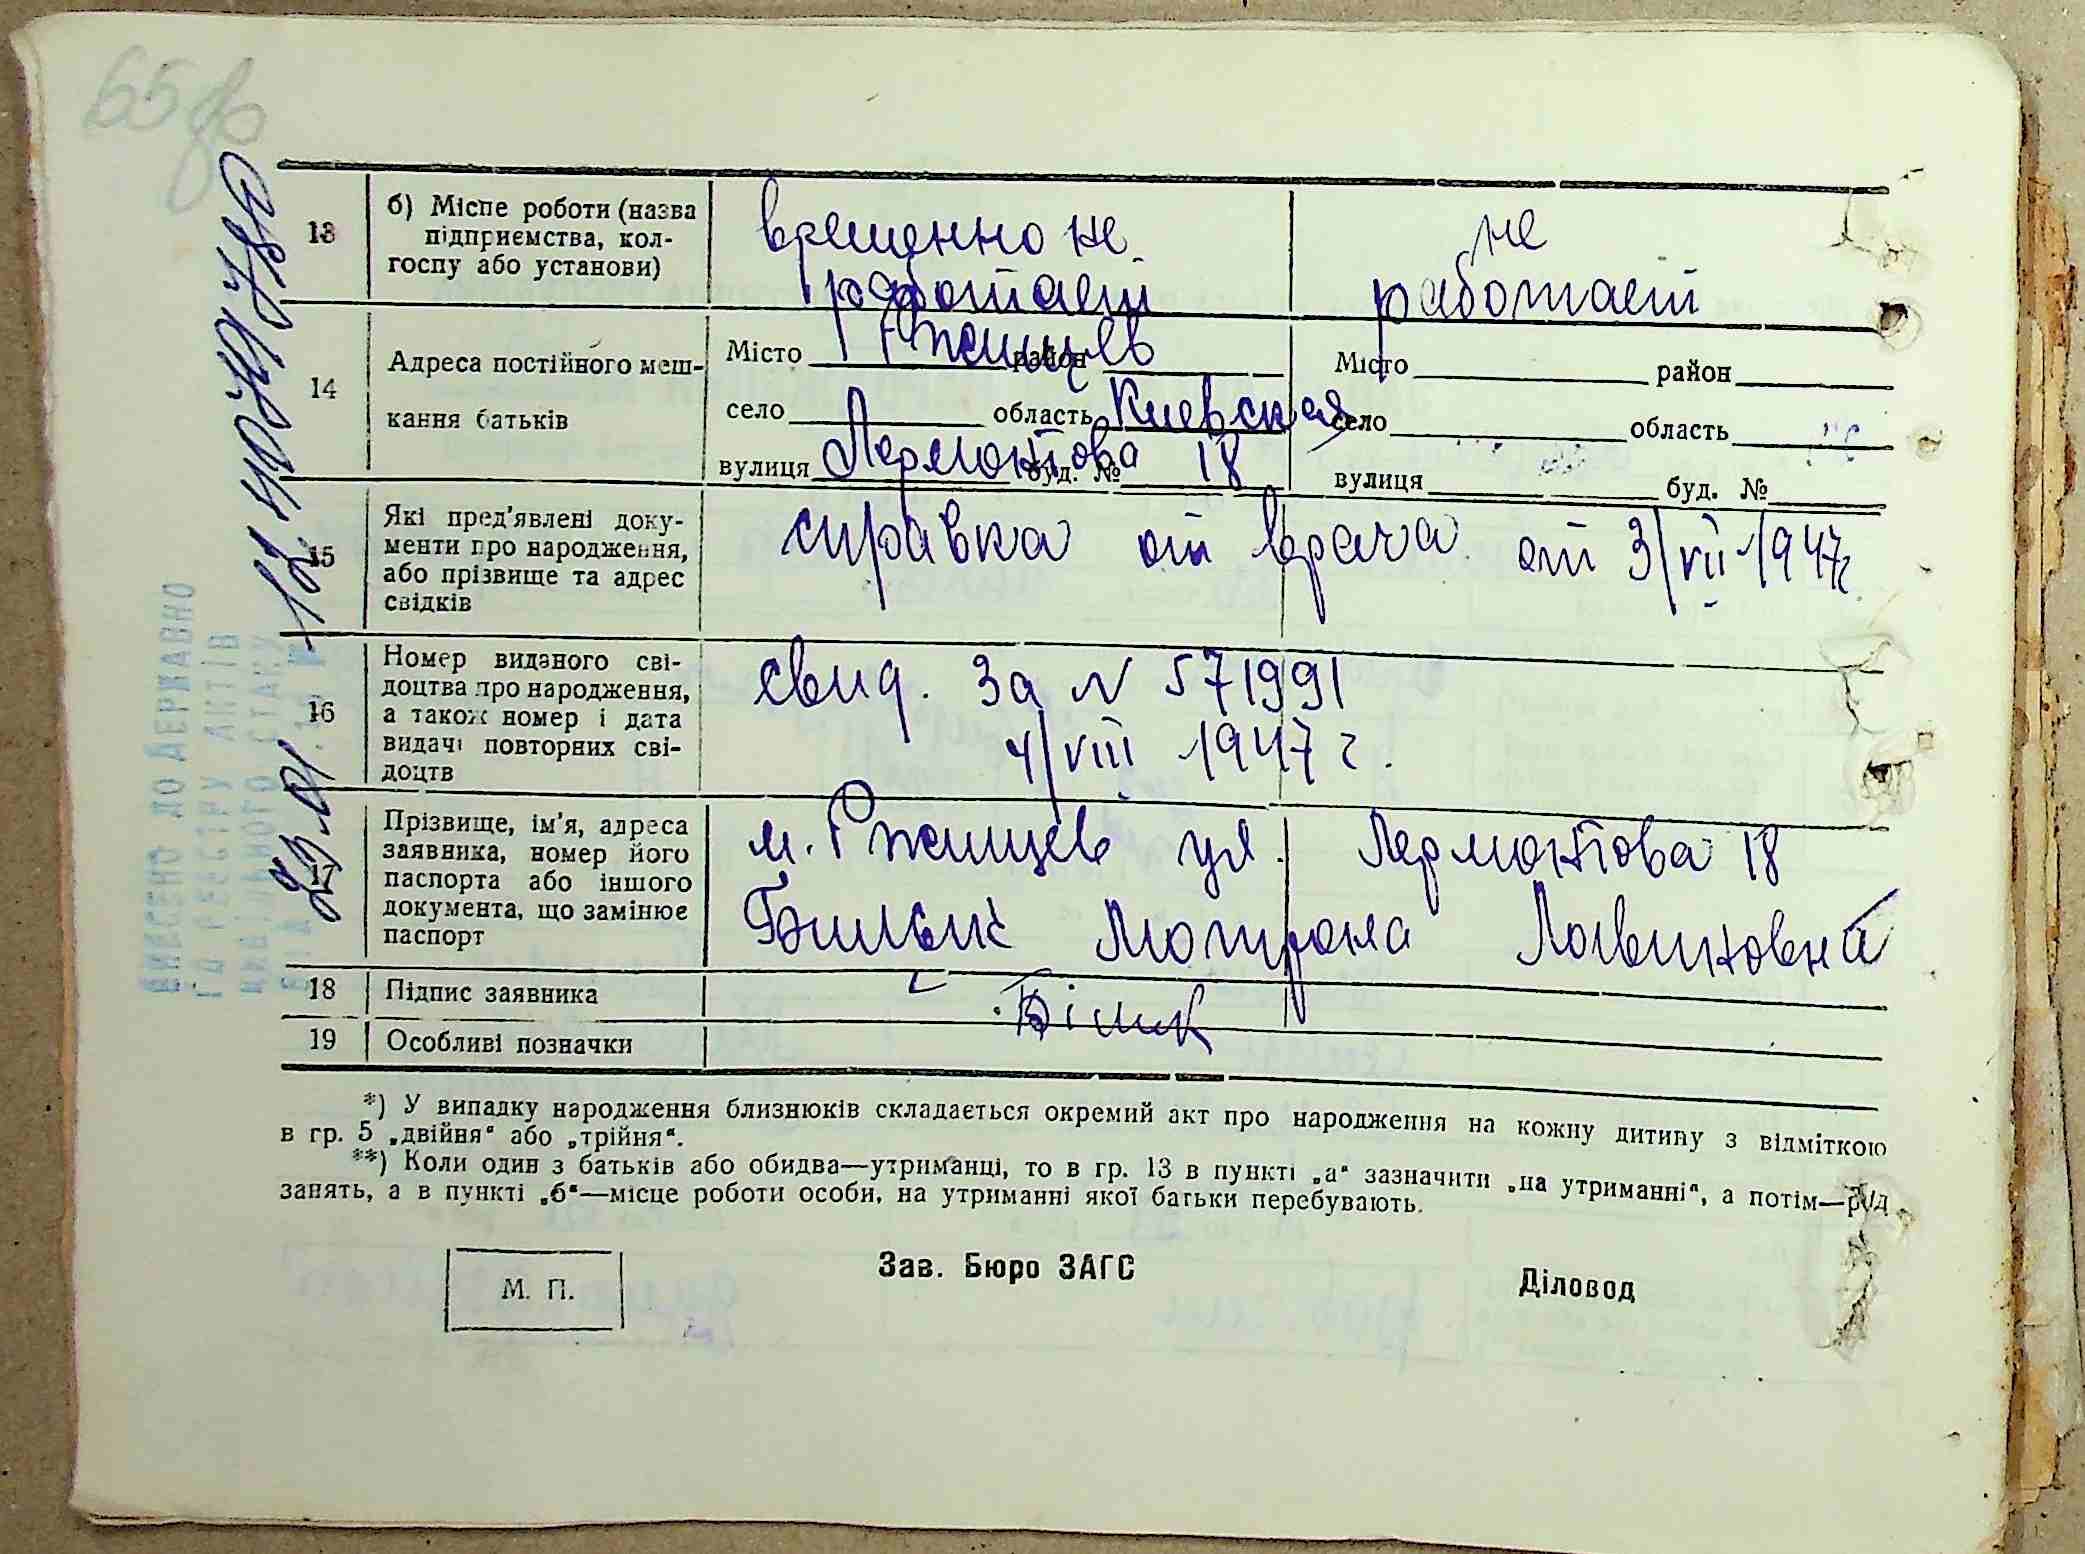 65 об
13 б) Місце роботи (назва підприємства, колгоспу або установи)
временно не работает
не работает
14 Адреса постійного мешкання батьків
Місто Ржищев район
село область Киевская
вулиця Лермонтова буд. № 18
Місто район
село область
вулиця буд. №
15 Які пред'явлені документи про народження, або прізвище та адрес свідків
справка от врача от 3/VII-1947г.
16 Номер виданого свідоцтва про народження, а також номер і дата видачі повторних свідоцтв
свид. за N 571991
4/VIII 1947 г.
17 Прізвище, ім'я, адреса заявника, номер його паспорта або іншого документа, що замінює паспорт
м. Ржищев ул. Лермонтова 18
Билык Мотрона Логвиновна
18 Підпис заявника
Білик
19 Особливі позначки
*) У випадку народження близнюків складається окремий акт про народження на кожну дитину з відміткою
в гр. 5 „двійня“ або „трійня“.
**) Коли один з батьків або обидва—утриманці, то в гр. 13 в пункті „а“ зазначити „на утриманні“, а потім—рід
занять, а в пункті „б“—місце роботи особи, на утриманні якої батьки перебувають.
М. П.
Зав. Бюро ЗАГС
Діловод
ВНЕСЕНО ДО ДЕРЖАВНО
ГО РЕЄСТРУ АКТІВ
ЦИВІЛЬНОГО СТАНУ